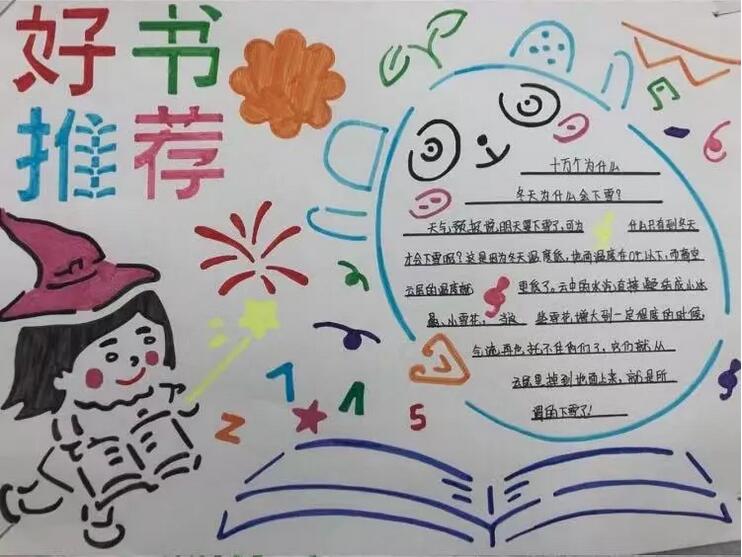 好书
推荐
十万个为什么
冬天为什么会下雪?
天气预报说,明天要下雪了,可为什么只有到冬天
才会下雪呢?这是因为冬天温度低,地面温度在0℃以下,而高空
云层的温度就更低了。云中的水汽直接凝结成小冰
晶、小雪花,当这些雪花增大到一定程度的时候,
气流再也托不住它们了,它们就从
云层里掉到地面上来,就是所
谓的下雪了!
2 7 1 5